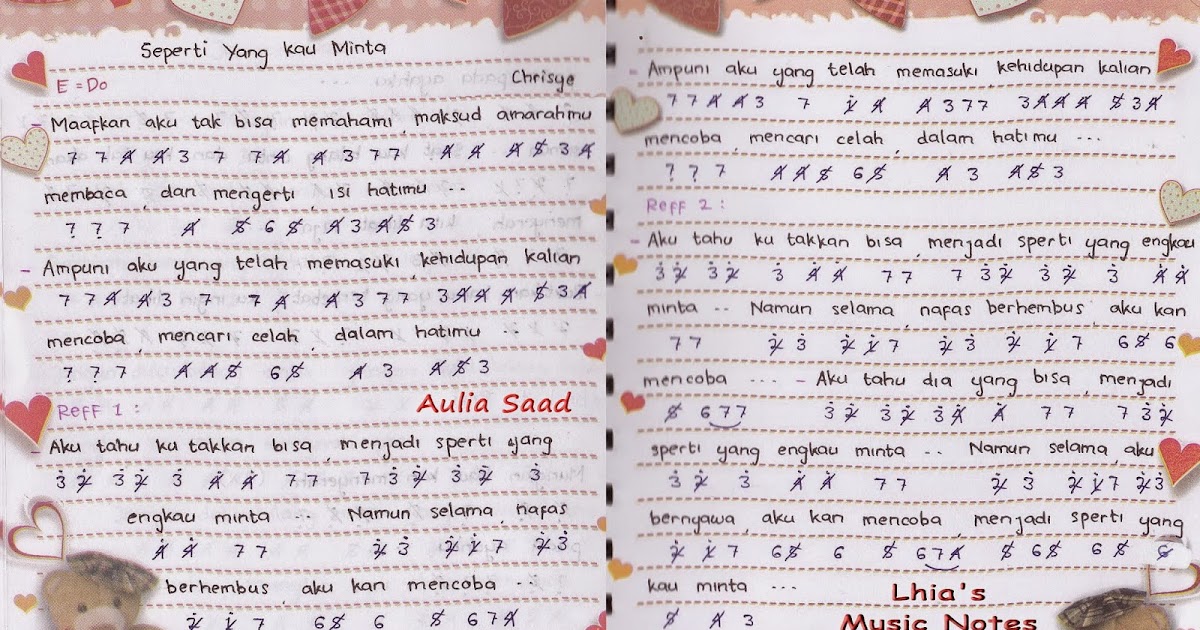 Seperti Yang Kau Minta
E = Do
Chrisye
- Maafkan aku tak bisa memahami, maksud amarahmu
7 7 4̸ 4̸ 3 7 7 4̸ 4̸ 3 7 7 4̸ 4̸ 4̸ 5̸ 3 4̸
membaca dan mengerti isi hatimu ..
7̣ 7̣ 7 4̸ 5̸ 6 5̸ 4̸ 3 4̸ 5̸ 3
- Ampuni aku yang telah memasuki, kehidupan kalian
7 7 4̸ 4̸ 3 7 7 4̸ 4̸ 3 7 7 3 4̸ 4̸ 4̸ 5̸ 3 4̸
mencoba, mencari celah, dalam hatimu ..
7̣ 7̣ 7 4̸ 4̸ 5̸ 6 5̸ 4̸ 3 4̸ 5̸ 3
Reff 1 :
Aulia Saad
- Aku tahu ku takkan bisa, menjadi sperti yang
3̇ 2̸̇ 3̇ 2̸̇ 3̇ 1̸̇ 1̸̇ 7 7 7 3̇ 2̸̇ 3̇ 2̸̇ 3̇
engkau minta ... Namun selama, nafas
1̸̇ 1̸̇ 7 7 2̸̇ 3̇ 2̸̇ 1̸̇ 7 2̸̇ 3̇
berhembus, aku kan mencoba ..
2̸̇ 1̸̇ 7 6 5̸ 6 5̸ 6 7 4̸
- Ampuni aku yang telah memasuki, kehidupan kalian
7 7 4̸ 4̸ 3 7 1̸̇ 4̸ 4̸ 3 7 7 3 4̸ 4̸ 4̸ 5̸ 3 4̸
mencoba, mencari celah, dalam hatimu ...
7̣ 7̣ 7 4̸ 4̸ 5̸ 6 5̸ 4̸ 3 4̸ 5̸ 3
Reff 2 :
- Aku tahu ku takkan bisa, menjadi sperti yang engkau
3̇ 2̸̇ 3̇ 2̸̇ 3̇ 1̸̇ 1̸̇ 7 7 7 3̇ 2̸̇ 3̇ 2̸̇ 3̇ 1̸̇ 1̸̇
minta .. Namun selama, nafas berhembus, aku kan
7 7 2̸̇ 3̇ 2̸̇ 1̸̇ 7 2̸̇ 3̇ 2̸̇ 1̸̇ 7 6 5̸ 6
mencoba .... - Aku tahu dia yang bisa, menjadi
5̸ 6 7 7 3̇ 2̸̇ 3̇ 2̸̇ 3̇ 1̸̇ 1̸̇ 7 7 7 3̇ 2̸̇
sperti yang engkau minta .. Namun selama, aku
3̇ 2̸̇ 3̇ 1̸̇ 1̸̇ 7 7 2̸̇ 3̇ 2̸̇ 1̸̇ 7 2̸̇ 3̇
bernyawa, aku kan mencoba, menjadi sperti yang
2̸̇ 1̸̇ 7 6 5̸ 6 5̸ 6 7 4̸ 5̸ 6 5̸ 6 5̸ 6̸
kau minta ...
5̸ 4̸ 3
Lhia's
Music Notes